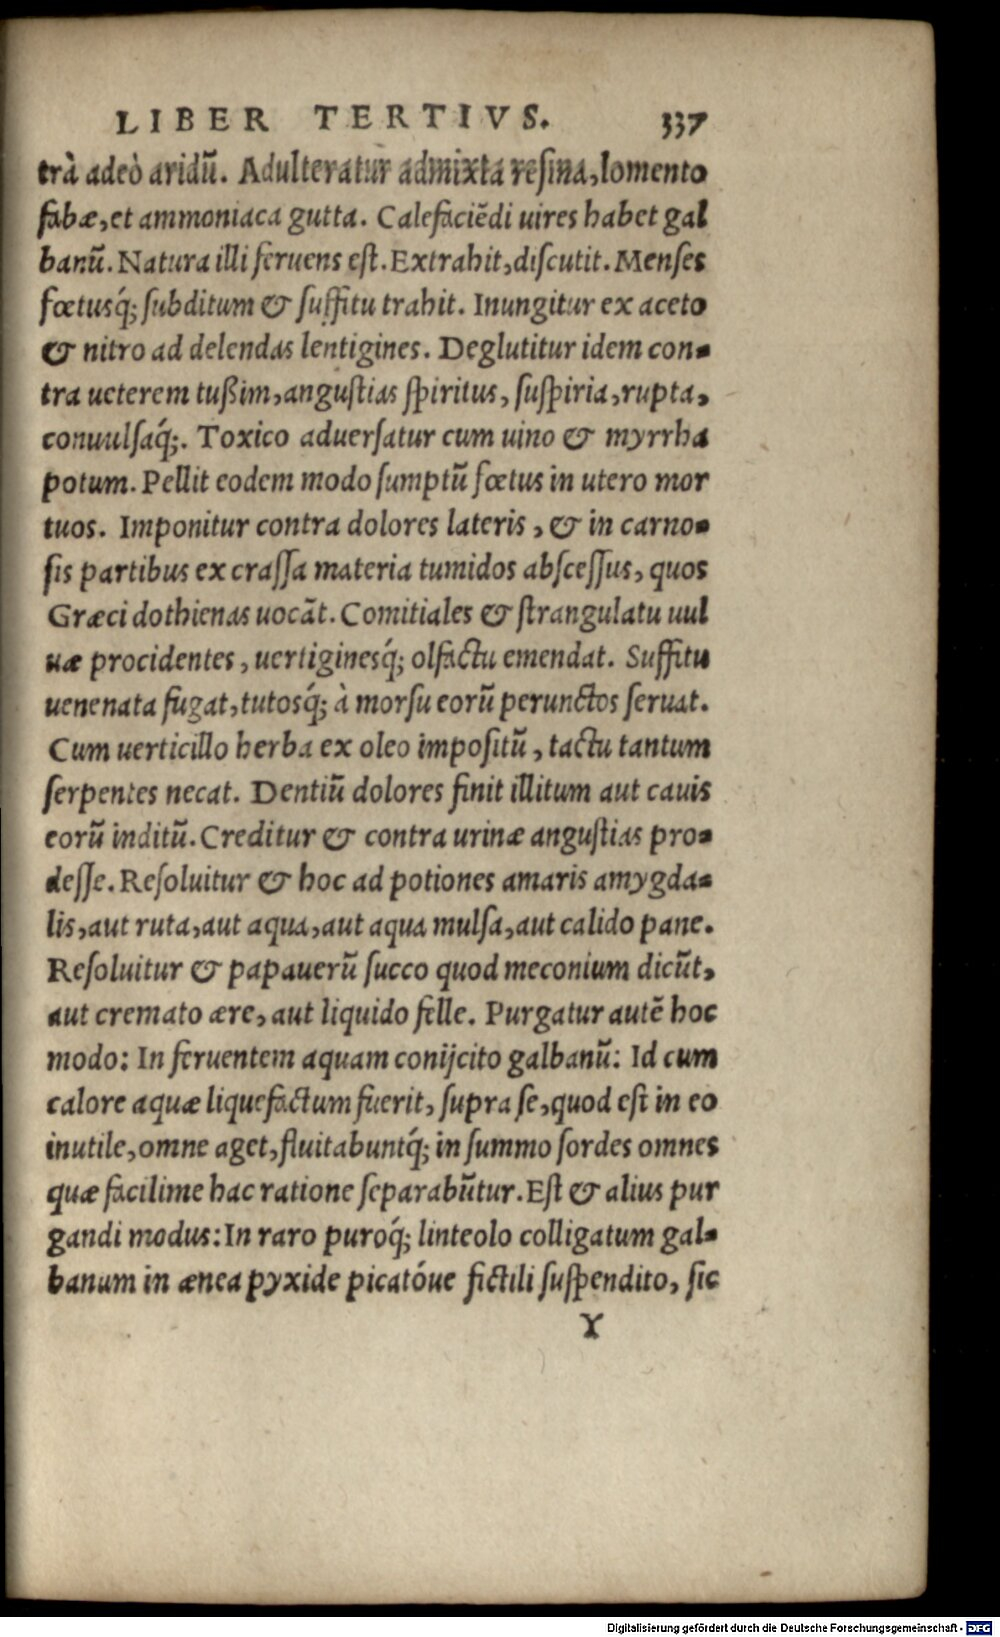 LIBER TERTIVS. 337
trà adeò aridũ. Adulteratur admixta resina, lomento
fabæ, et ammoniaca gutta. Calefaciẽdi uires habet gal
banũ. Natura illi feruens est. Extrahit, discutit. Menses
fœtusq́; subditum & suffitu trahit. Inungitur ex aceto
& nitro ad delendas lentigines. Deglutitur idem con-
tra ueterem tußim, angustias spiritus, suspiria, rupta,
conuulsaq́;. Toxico aduersatur cum uino & myrrha
potum. Pellit eodem modo sumptũ fœtus in utero mor
tuos. Imponitur contra dolores lateris, & in carno-
sis partibus ex crassa materia tumidos abscessus, quos
Græci dothienas uocãt. Comitiales & strangulatu uul
uæ procidentes, uertiginesq́; olfactu emendat. Suffitu
uenenata fugat, tutosq́; à morsu eorũ perunctos seruat.
Cum uerticillo herba ex oleo impositũ, tactu tantum
serpentes necat. Dentiũ dolores finit illitum aut cauis
eorũ inditũ. Creditur & contra urinæ angustias pro-
desse. Resoluitur & hoc ad potiones amaris amygda-
lis, aut ruta, aut aqua, aut aqua mulsa, aut calido pane.
Resoluitur & papauerũ succo quod meconium dicũt,
aut cremato ære, aut liquido felle. Purgatur autẽ hoc
modo: In feruentem aquam conijcito galbanũ: Id cum
calore aquæ liquefactum fuerit, supra se, quod est in eo
inutile, omne aget, fluitabuntq́; in summo sordes omnes
quæ facilime hac ratione separabũtur. Est & alius pur
gandi modus: In raro puroq́; linteolo colligatum gal-
banum in ænea pyxide picatóue fictili suspendito, sic
Y
Digitalisierung gefördert durch die Deutsche Forschungsgemeinschaft - DFG